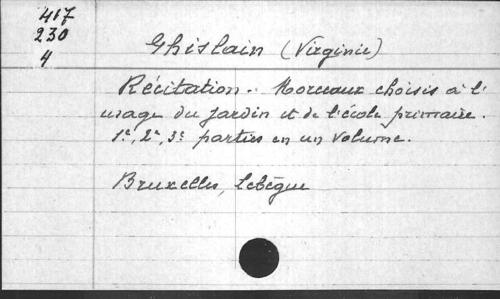 417
230
4
Ghislain (Virginie)
Récitation. Morceaux choisis à l'
usage du jardin et de l'école primaire.
1e, 2e, 3e parties en un volume.
Bruxelles, Lebègue